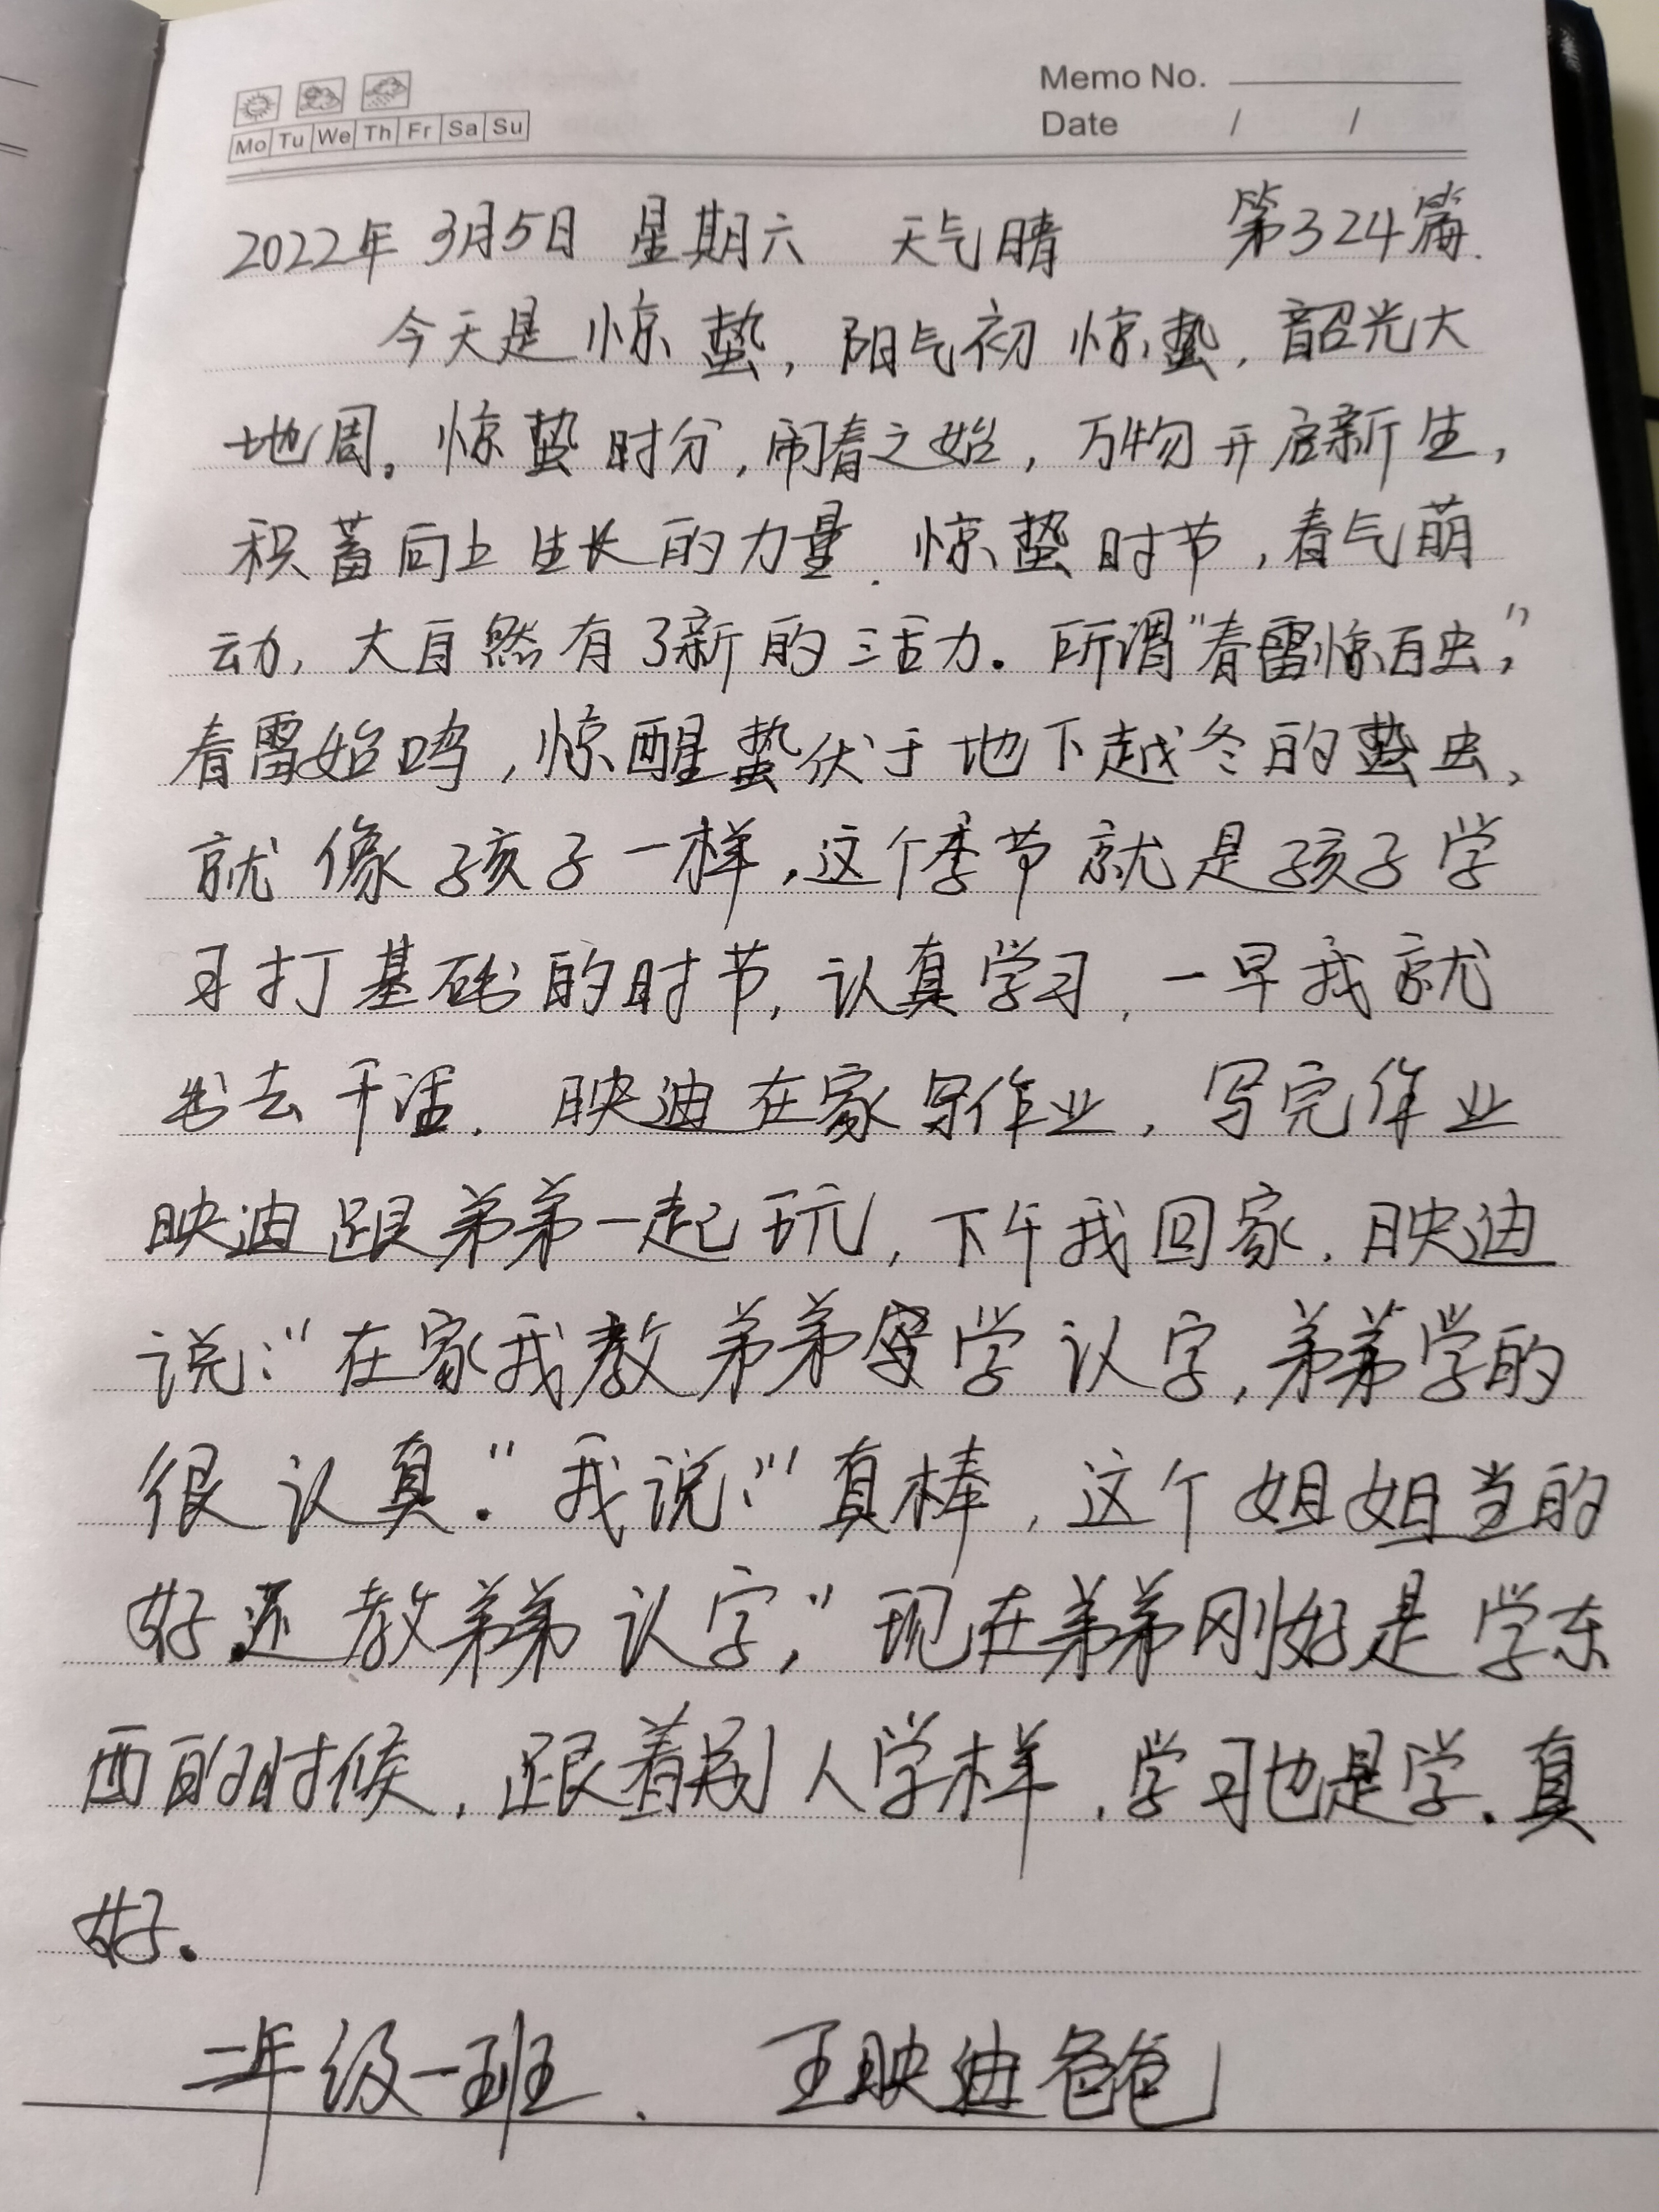 Memo No.
Mo Tu We Th Fr Sa Su
Date / /
2022年3月5日 星期六 天气晴 第324篇.
今天是惊蛰，阳气初惊蛰，韶光大
地周。惊蛰时分，闹春之始，万物开启新生，
积蓄向上生长的力量.惊蛰时节，春气萌
动，大自然有了新的活力。所谓“春雷惊百虫”，
春雷始鸣，惊醒蛰伏于地下越冬的蛰虫，
就像孩子一样，这个季节就是孩子学
习打基础的时节，认真学习，一早我就
出去干活．映迪在家写作业，写完作业
映迪跟弟弟一起玩，下午我回家，映迪
说：“在家我教弟弟学认字，弟弟学的
很认真。”我说：“真棒，这个姐姐当的
好还教弟弟认字，”现在弟弟刚好是学东
西的时候，跟着别人学样，学习也是学．真
好．
二年级一班．王映迪爸爸